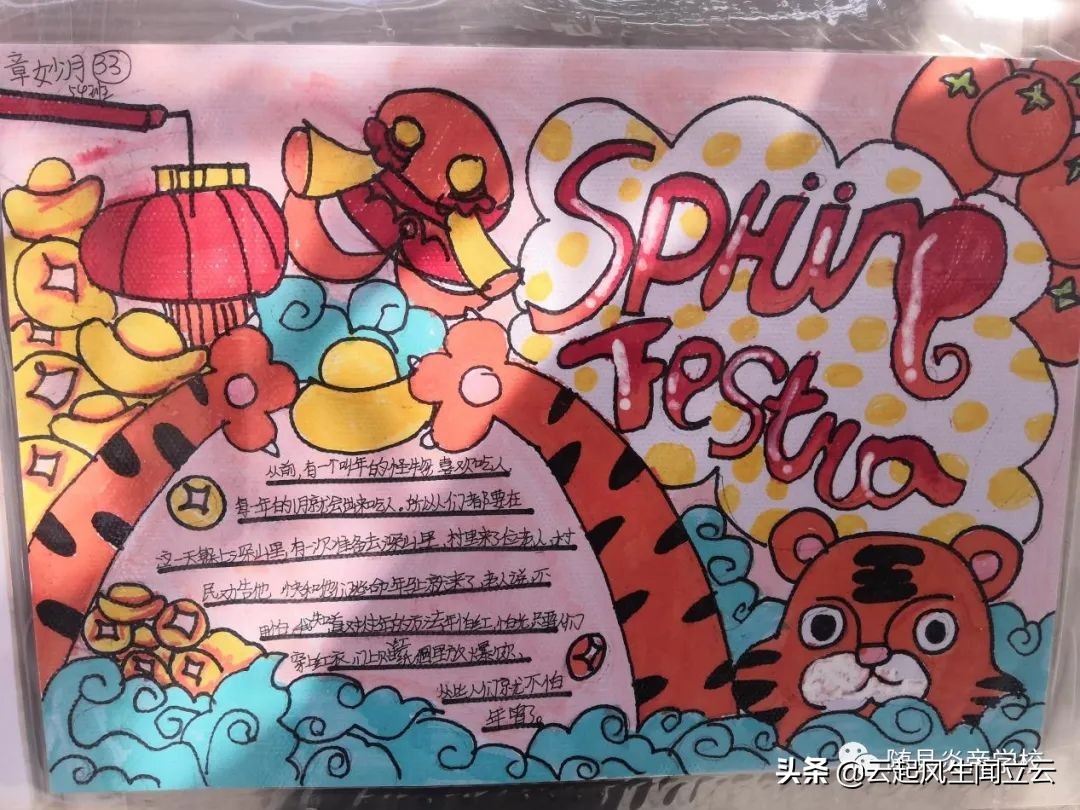 章妙月 B3
542班
SPHiing
Festva
从前,有一个叫年的怪物,喜欢吃人
每一年的1月就会出来吃人。所以人们都要在
这一天躲上深山里,有一次准备去深山里,村里来了位老人,村
民劝告他
年马上就来了,老人说,不
用怕,我知道对付年的方法年怕红,怕光,只要你们
穿上红衣,门上贴
放爆
从此人们就不怕
年兽了。
随县炎帝学校
头条 @云起风生闻立云